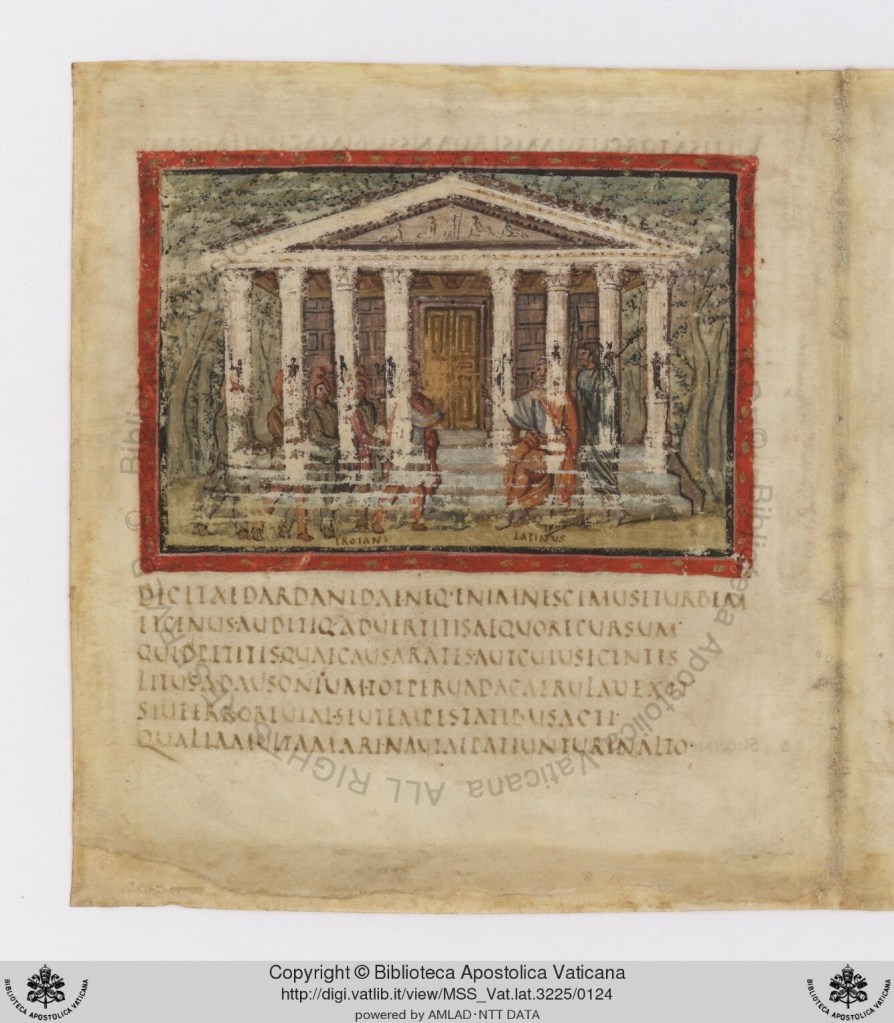 TROIANI
LATINUS
DICITAEDARDANIDAE·NEQ·ENIMNESCIMUSETURBEM
ETGENUS·AUDITIQ·ADVERTITISAEQUORECURSUM
QUIDPETITISQUAECAUSARATES·AUTCUIUSEGENTIS
LITUSADAUSONIUM·TOTPERVADACAERULAVEXIT
SIVEERROREVIAE·SEUTEMPESTATIBUSACTI·
QUALIAMULTAMARINAUTAEPATIUNTURINALTO·
© Biblioteca Apostolica Vaticana ALL RIGHTS RESERVED
Copyright © Biblioteca Apostolica Vaticana
http://digi.vatlib.it/view/MSS_Vat.lat.3225/0124
powered by AMLAD·NTT DATA
BIBLIOTECA APOSTOLICA VATICANA
BIBLIOTECA APOSTOLICA VATICANA